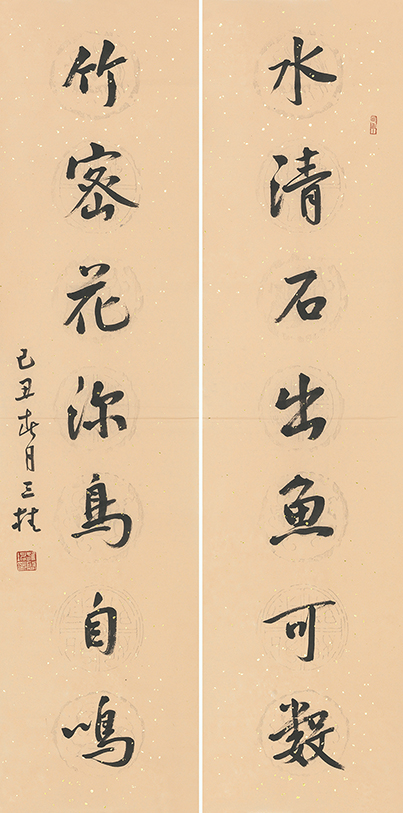 水清石出魚可数
竹密花深鳥自鳴
己丑春月三桂